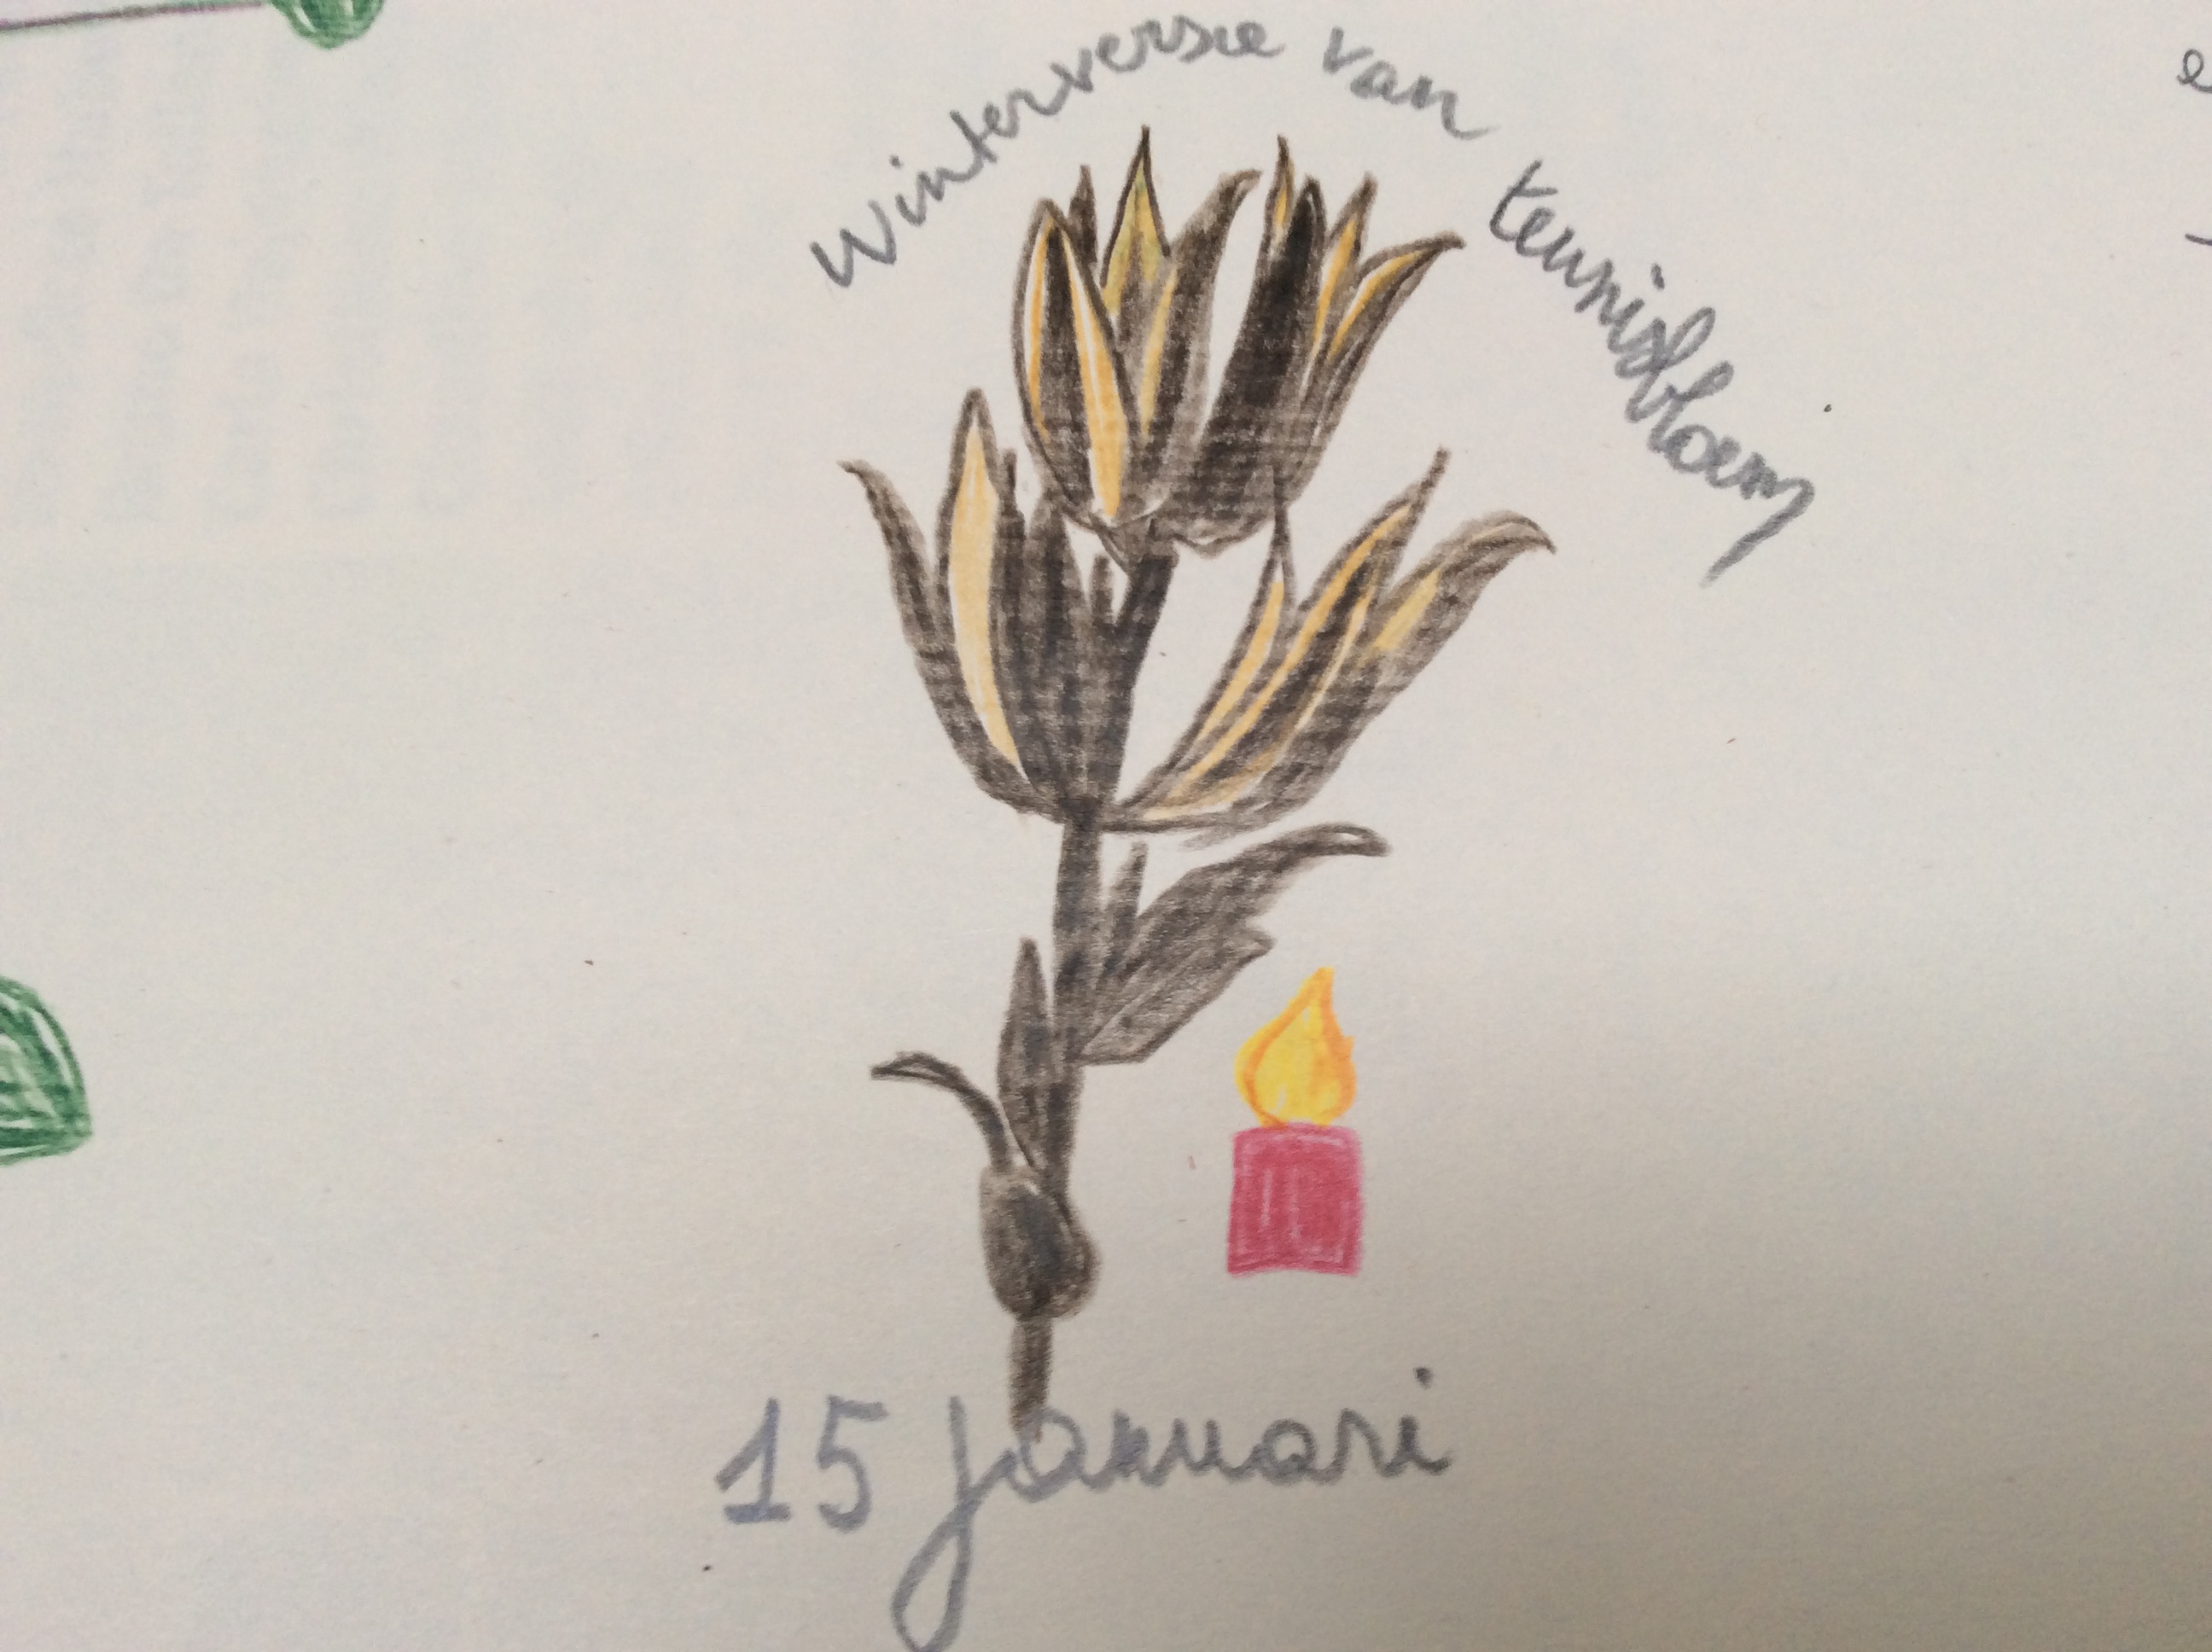 Winterversie van teunisbloem
15 januari